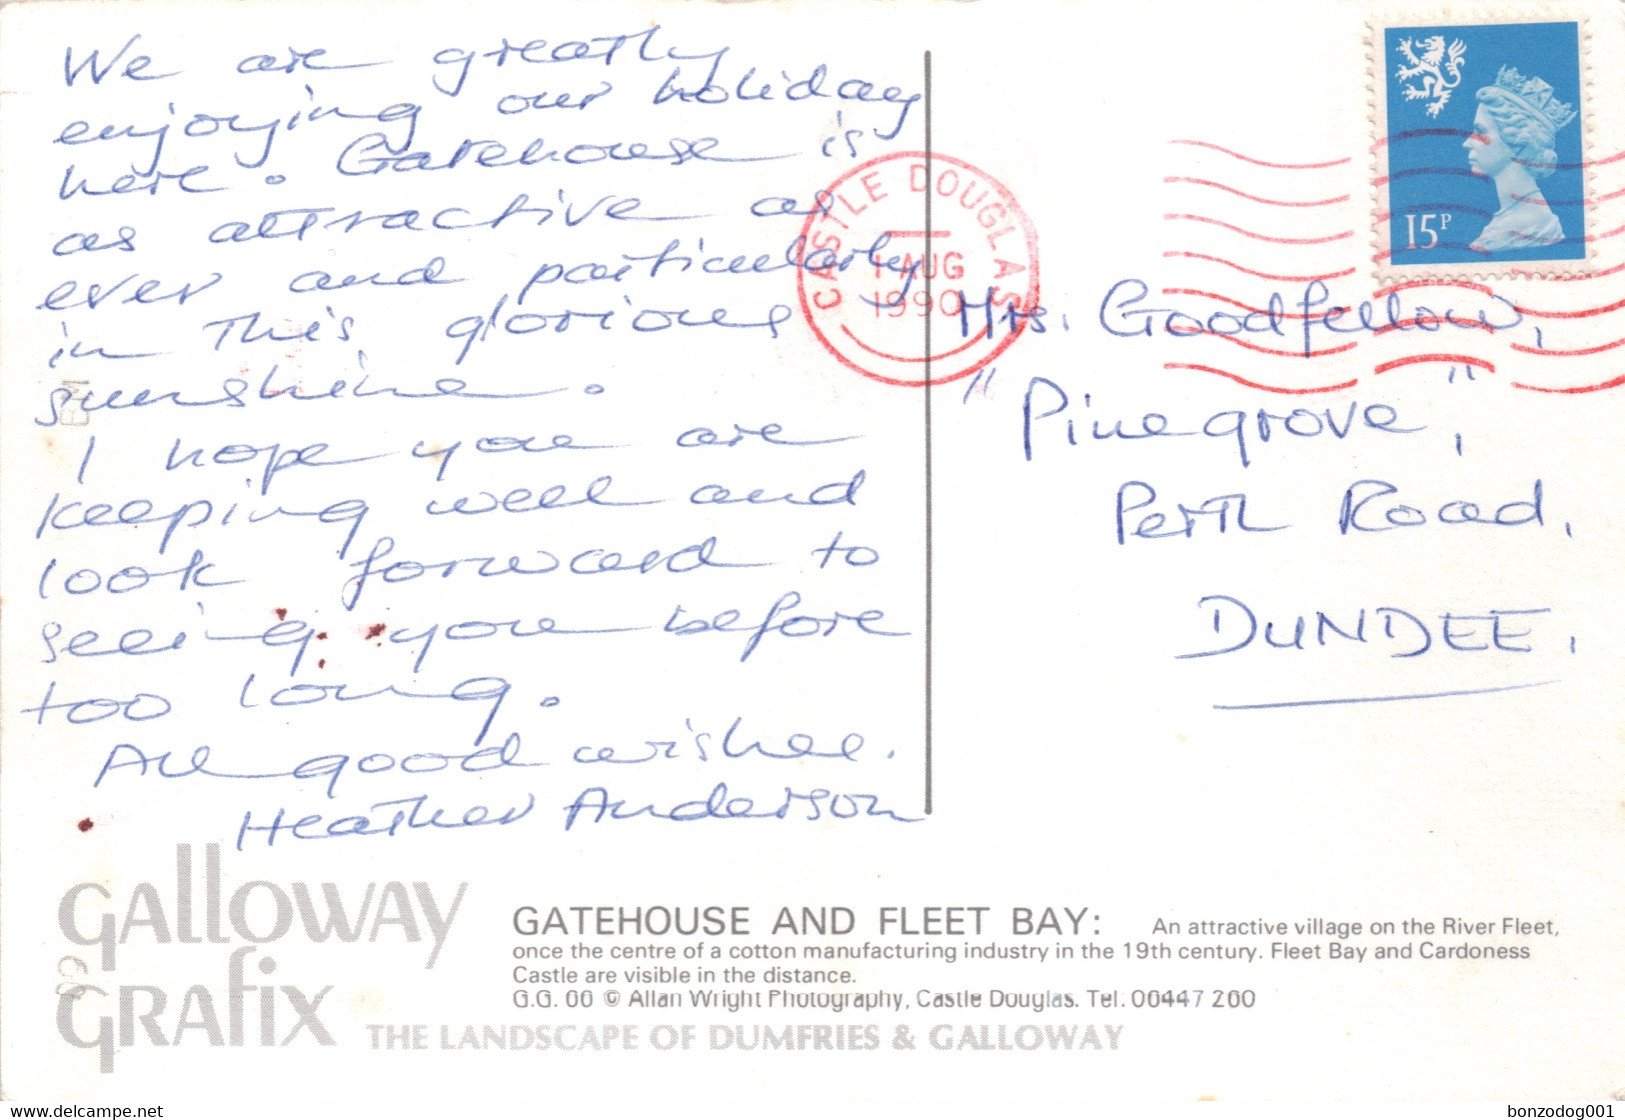 We are greatly
enjoying our holiday
here. Gatehouse is
as attractive as
ever and particularly
in this glorious
sunshine.
I hope you are
keeping well and
look forward to
seeing you before
too long.
All good wishes.
Heather Anderson
CASTLE DOUGLAS
1 AUG
1990
15P
Mrs. Goodfellow,
"Pinegrove",
Perth Road,
DUNDEE.
GALLOWAY
GRAFIX
GATEHOUSE AND FLEET BAY: An attractive village on the River Fleet,
once the centre of a cotton manufacturing industry in the 19th century. Fleet Bay and Cardoness
Castle are visible in the distance.
© Allan Wright Photography, Castle Douglas. Tel:
THE LANDSCAPE OF DUMFRIES & GALLOWAY
delcampe.net
bonzodog001